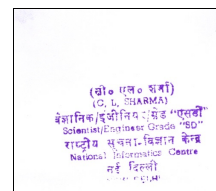 (सी० एल० शर्मा)
(C. L. SHARMA)
वैज्ञानिक/इंजीनियर ग्रेड "एसडी"
Scientist/Engineer Grade "SD"
राष्ट्रीय सूचना-विज्ञान केन्द्र
National Informatics Centre
नई दिल्ली